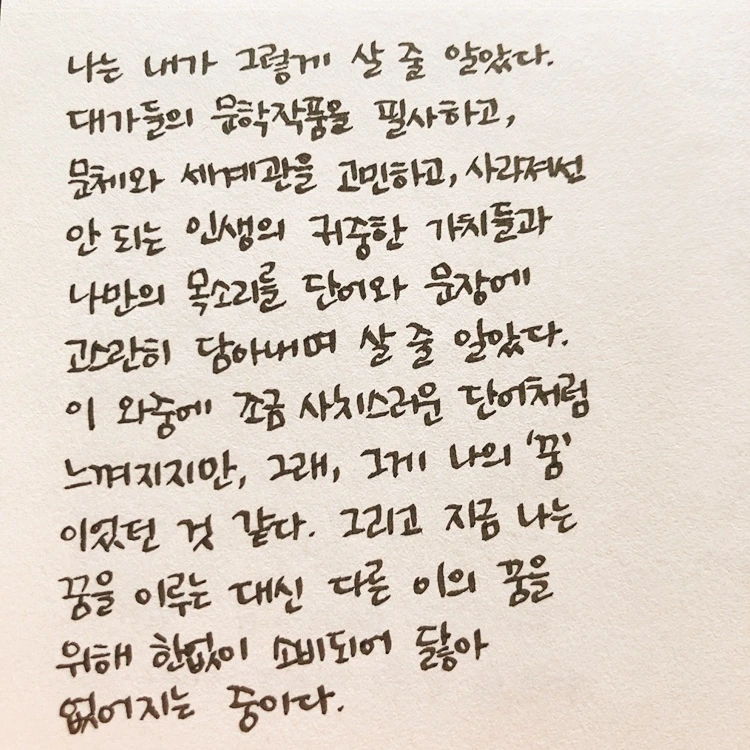 나는 내가 그렇게 살 줄 알았다.
대가들의 문학작품을 필사하고,
문체와 세계관을 고민하고, 사라져선
안 되는 인생의 귀중한 가치들과
나만의 목소리를 단어와 문장에
고스란히 담아내며 살 줄 알았다.
이 와중에 조금 사치스러운 단어처럼
느껴지지만, 그래, 그게 나의 '꿈'
이었던 것 같다. 그리고 지금 나는
꿈을 이루는 대신 다른 이의 꿈을
위해 한없이 소비되어 닳아
없어지는 중이다.